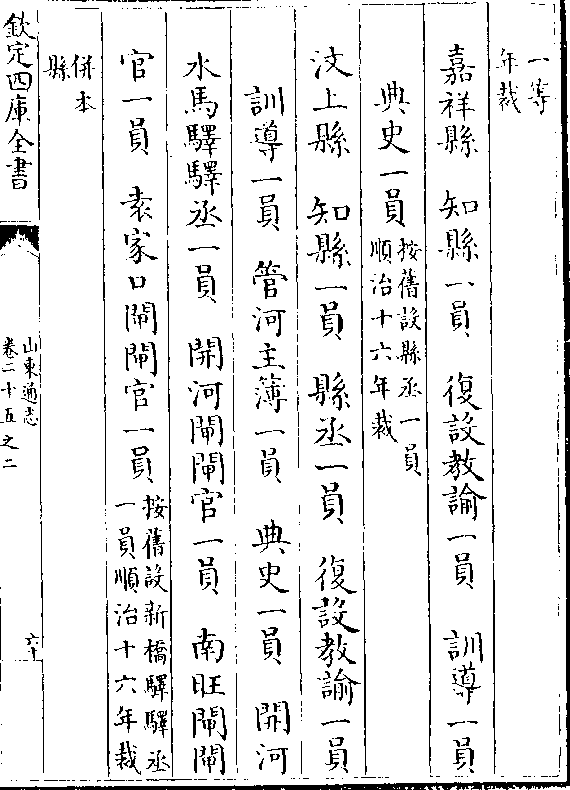 一等
年裁
嘉祥縣　知縣一員　復設教諭一員　訓導一員
典史一員
按舊設縣丞一員
順治十六年裁
汶上縣　知縣一員　縣丞一員　復設教諭一員
訓導一員　管河主簿一員　典史一員　開河
水馬驛驛丞一員　開河閘閘官一員　南旺閘閘
官一員　袁家口閘閘官一員
按舊設新橋驛驛丞
一員順治十六年裁
併本
縣
欽定四庫全書
山東通志
卷二十五之二
六十